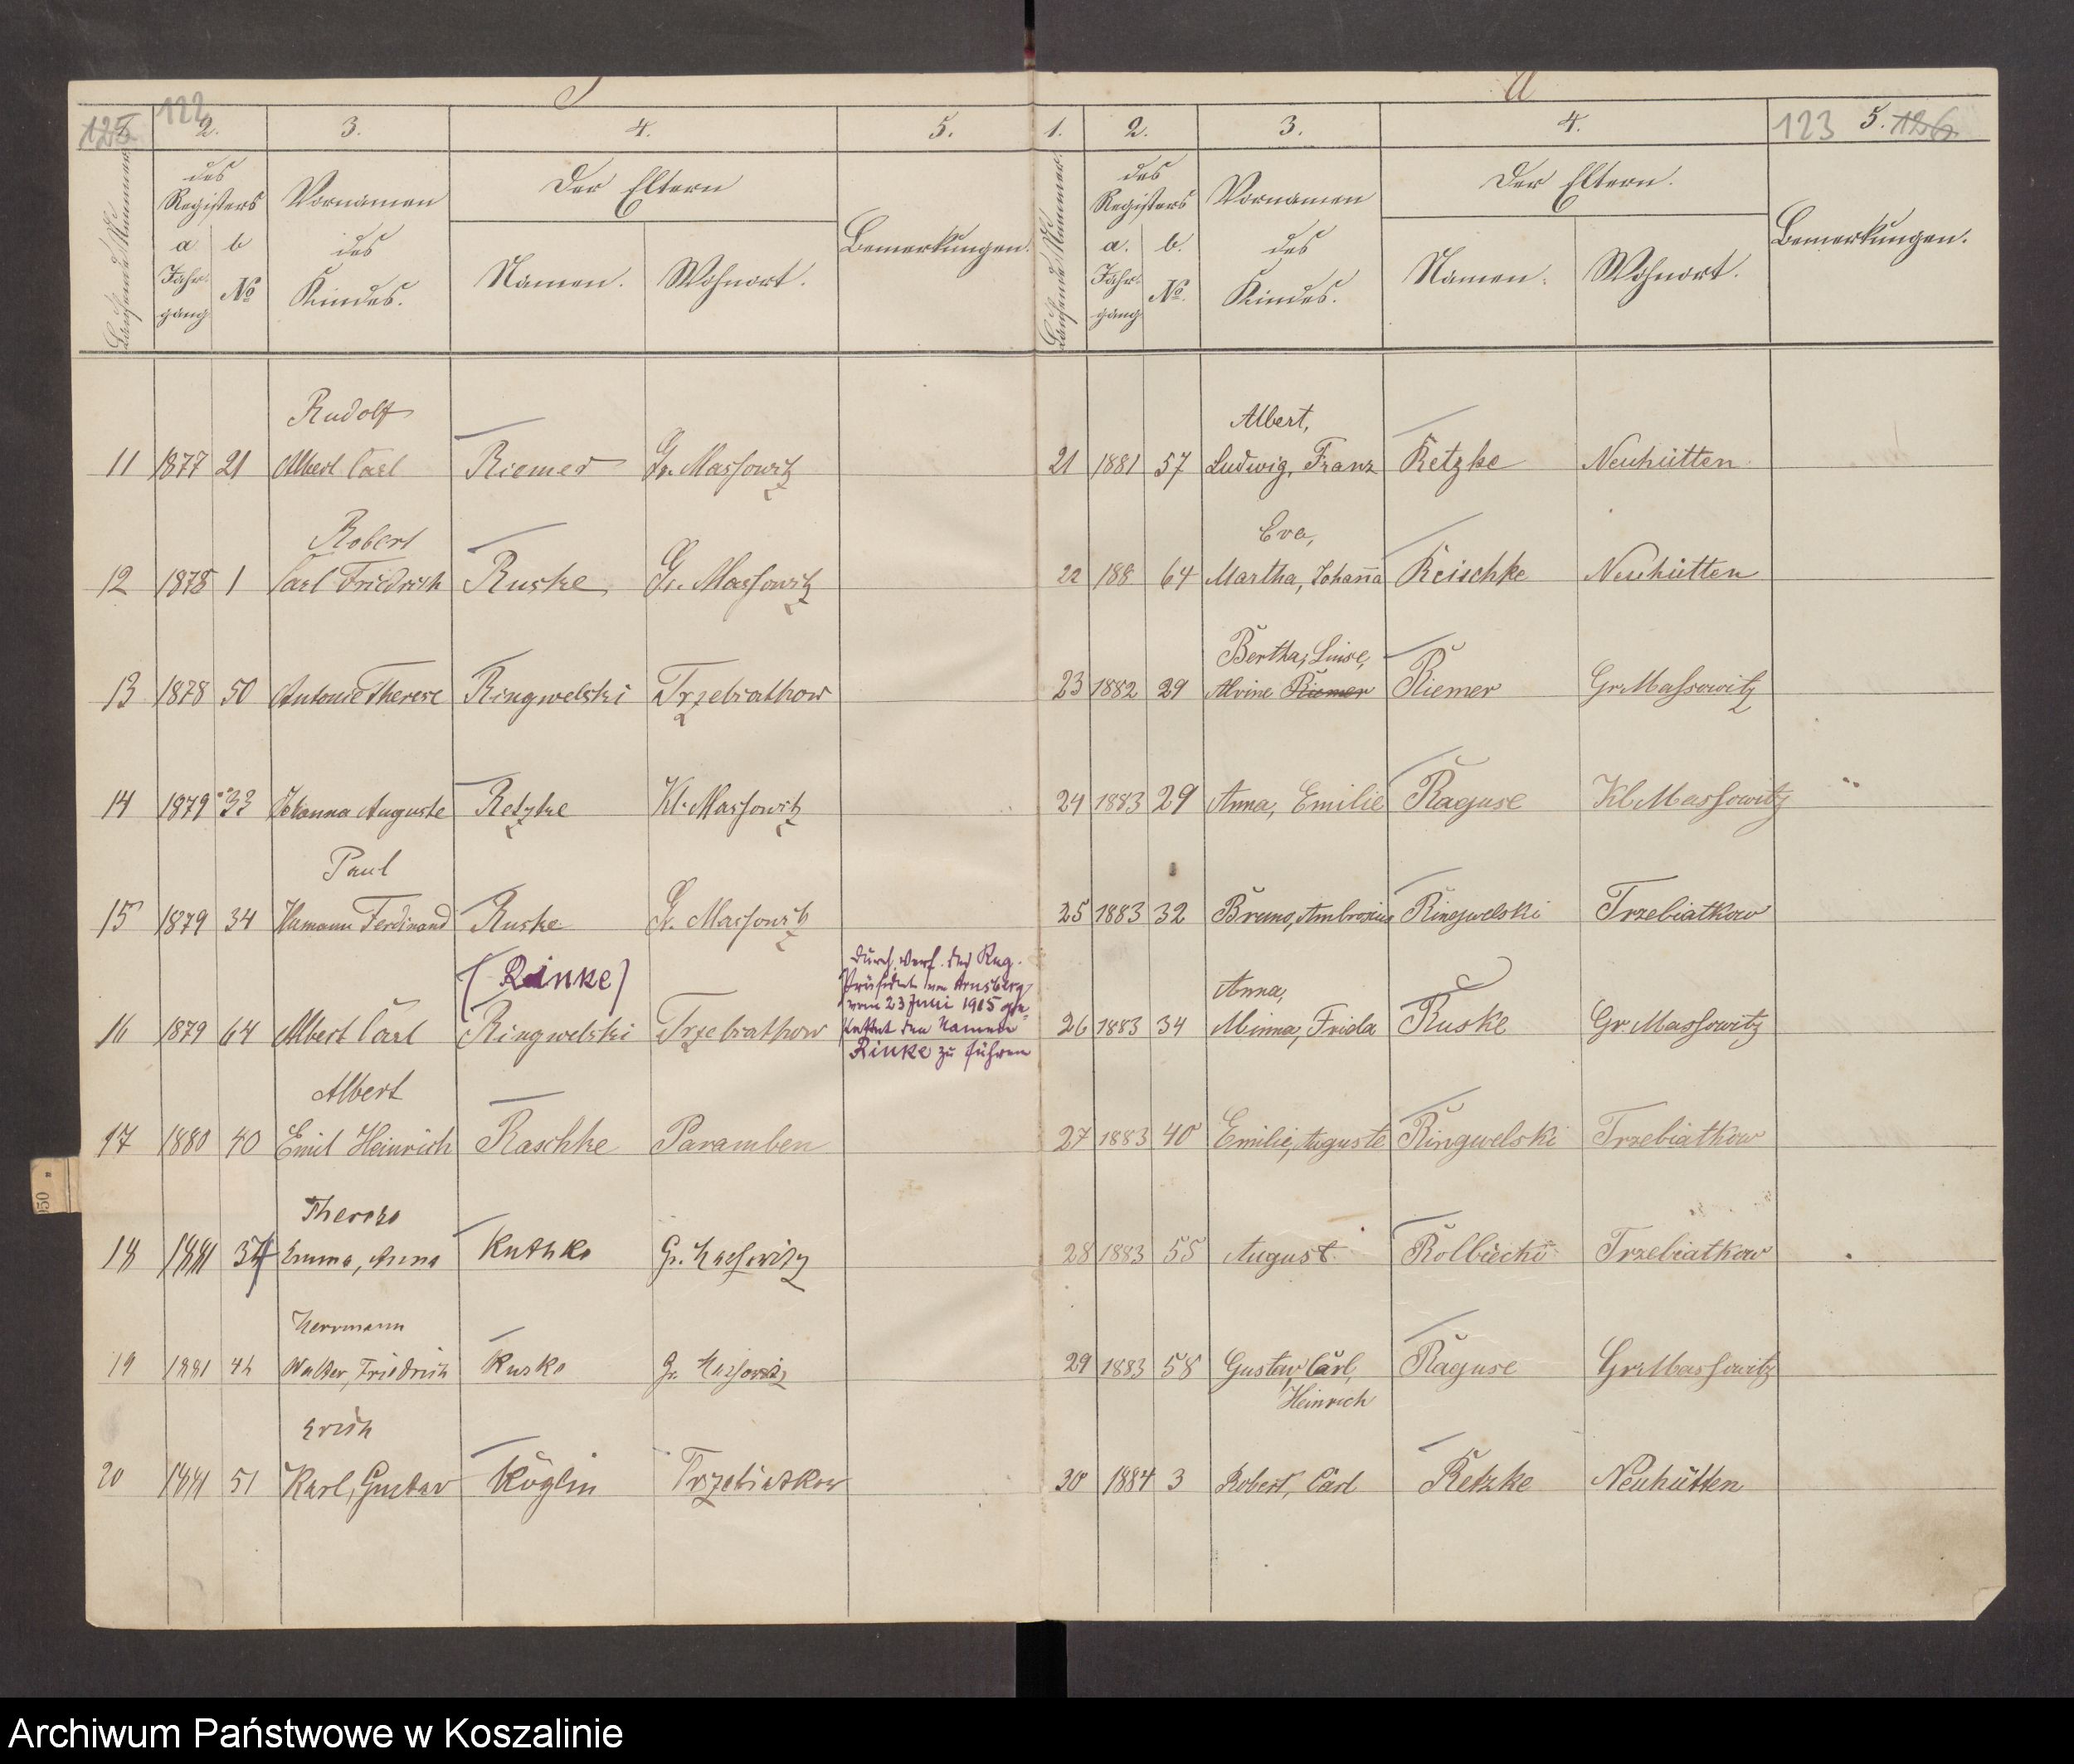 122
125
1. 2. 3. 4. 5.
Laufende Nummer.
des Registers
a b
Jahrgang
No
Vornamen
des
Kindes.
Der Eltern
Namen. Wohnort.
Bemerkungen.
Rudolf
11 1877 21 Albert Carl Riemer Gr. Massowitz
Robert
12 1878 1 Carl Friedrich Ruske Gr. Massowitz
13 1878 50 Antonie Therese Ringwelski Trzebiatkow
14 1879 33 Johanna Auguste Retzke Kl. Massowitz
Paul
15 1879 34 Hermann Ferdinand Ruske Gr. Massowitz
(Rinke)
16 1879 64 Albert Carl Ringwelski Trzebiatkow
Durch Verf. des Reg.
Präsidenten von Arnsberg
vom 23 Juni 1915 ge-
stattet den Namen
Rinke zu führen
Albert
17 1880 40 Emil Heinrich Raschke Paramben
Therese
18 1881 34 Emma, Anna Gr. Massowitz
Herrmann
19 1881 Walter, Friedrich Ruske Gr. Massowitz
Erich
20 1881 51 Karl, Gustav Röglin Trzebiatkow
123
5. 126
1. 2. 3. 4.
Laufende Nummer.
des
Registers
a. b.
Jahrgang
No.
Vornamen
des
Kindes.
Der Eltern.
Namen. Wohnort.
Bemerkungen.
Albert,
21 1881 57 Ludwig, Franz Retzke Neuhütten
Eva,
22 188 64 Martha, Johanna Reischke Neuhütten
Bertha, Luise,
23 1882 29 Alvine Riemer Riemer Gr. Massowitz
24 1883 29 Anna, Emilie Raguse Kl. Massowitz
25 1883 32 Bruno, Ambrosius Ringwelski Trzebiatkow
Anna,
26 1883 34 Minna, Frida Ruske Gr. Massowitz
27 1883 40 Emilie, Auguste Ringwelski Trzebiatkow
28 1883 55 August Rolbiecki Trzebiatkow
29 1883 58 Gustav, Carl, Raguse Gr. Massowitz
Heinrich
30 1884 3 Robert, Carl Retzke Neuhütten
Archiwum Państwowe w Koszalinie